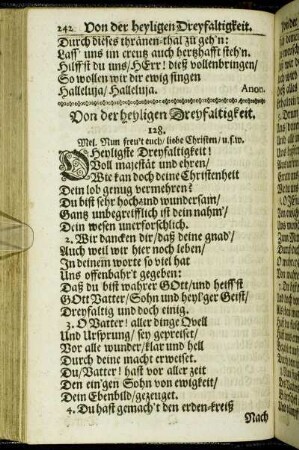 242 Von der heyligen Dreyfaltigkeit.
Durch dieses thränen-thal zu geh'n:
Lass' uns im creutz auch hertzhafft steh'n.
Hilff'st du uns/HErr! diß vollenbringen/
So wollen wir dir ewig singen
Halleluja/Halleluja. Anon.
Von der heyligen Dreyfaltigkeit.
128.
Mel. Nun freu't euch/ liebe Christen/ u.s.w.
O Heyligste Dreyfaltigkeit!
Voll majestät und ehren/
Wie kan doch deine Christenheit
Dein lob genug vermehren?
Du bist sehr hoch und wundersam/
Gantz unbegreifflich ist dein nahm'/
Dein wesen unerforschlich.
2. Wir dancken dir/daß deine gnad'/
Auch weil wir hier noch leben/
In deinem worte so viel hat
Uns offenbahr't gegeben:
Daß du bist wahrer GOtt/und heiss'st
GOtt Vatter/Sohn und heyl'ger Geist/
Dreyfaltig und doch einig.
3. O Vatter! aller dinge Qvell
Und Ursprung/ sey gepreiset/
Vor alle wunder/klar und hell
Durch deine macht erweiset.
Du/Vatter! hast vor aller zeit
Den ein'gen Sohn von ewigkeit/
Dein Ebenbild/gezeuget.
4. Du hast gemach't den erden-kreiß
Nach